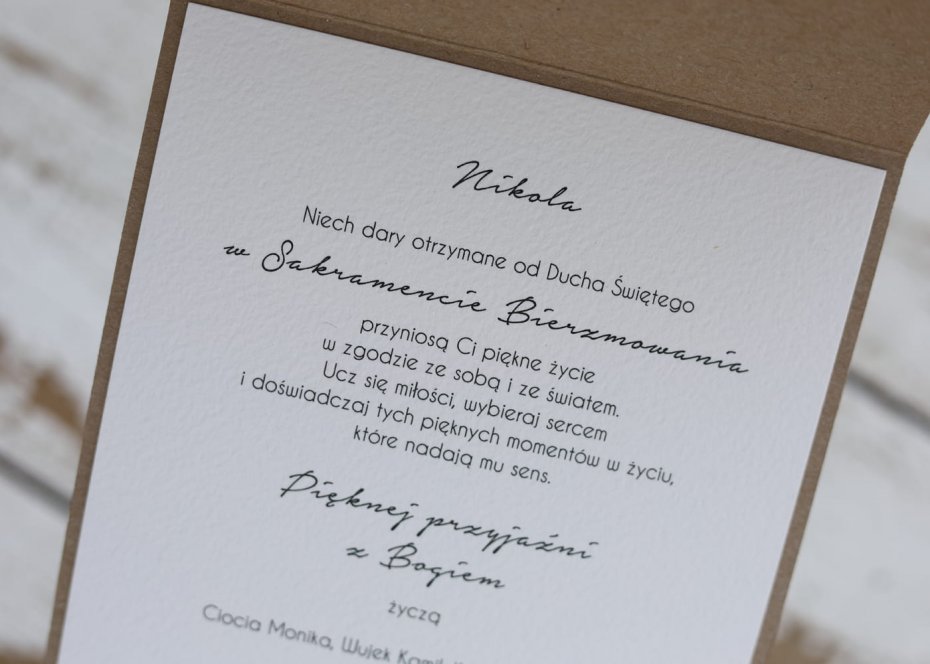 Nikola
Niech dary otrzymane od Ducha Świętego
w Sakramencie Bierzmowania
przyniosą Ci piękne życie
w zgodzie ze sobą i ze światem.
Ucz się miłości, wybieraj sercem
i doświadczaj tych pięknych momentów w życiu,
które nadają mu sens.
Pięknej przyjaźni
z Bogiem
życzą
Ciocia Monika, Wujek